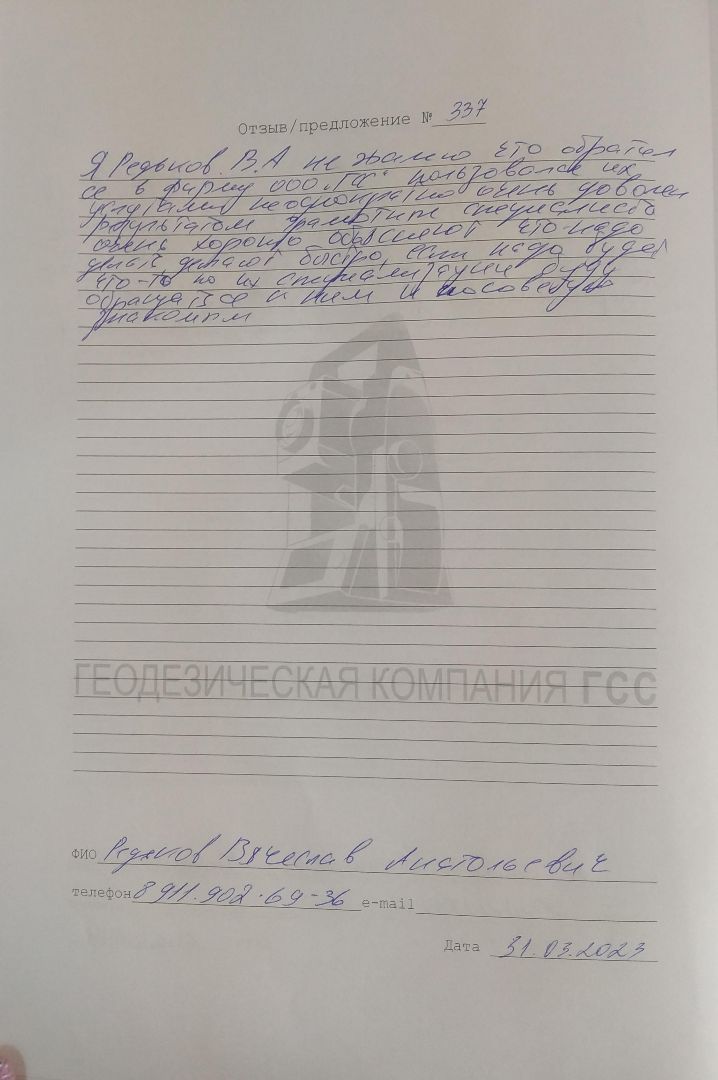 Отзыв/предложение № 337
Я Редьков В.А не жалею что обратил
ся в фирму ООО "ГСС" пользовался их
услугами неоднократно очень доволен
результатом грамотные специалисты
очень хорошо объясняют что надо
делать, делают быстро, если надо будет
что-то по их специализации буду
обращаться к ним и посоветую
знакомым
ГЕОДЕЗИЧЕСКАЯ КОМПАНИЯ ГСС
ФИО Редьков Вячеслав Анатольевич
телефон 8 911.902.69-36 e-mail
Дата 31.03.2023